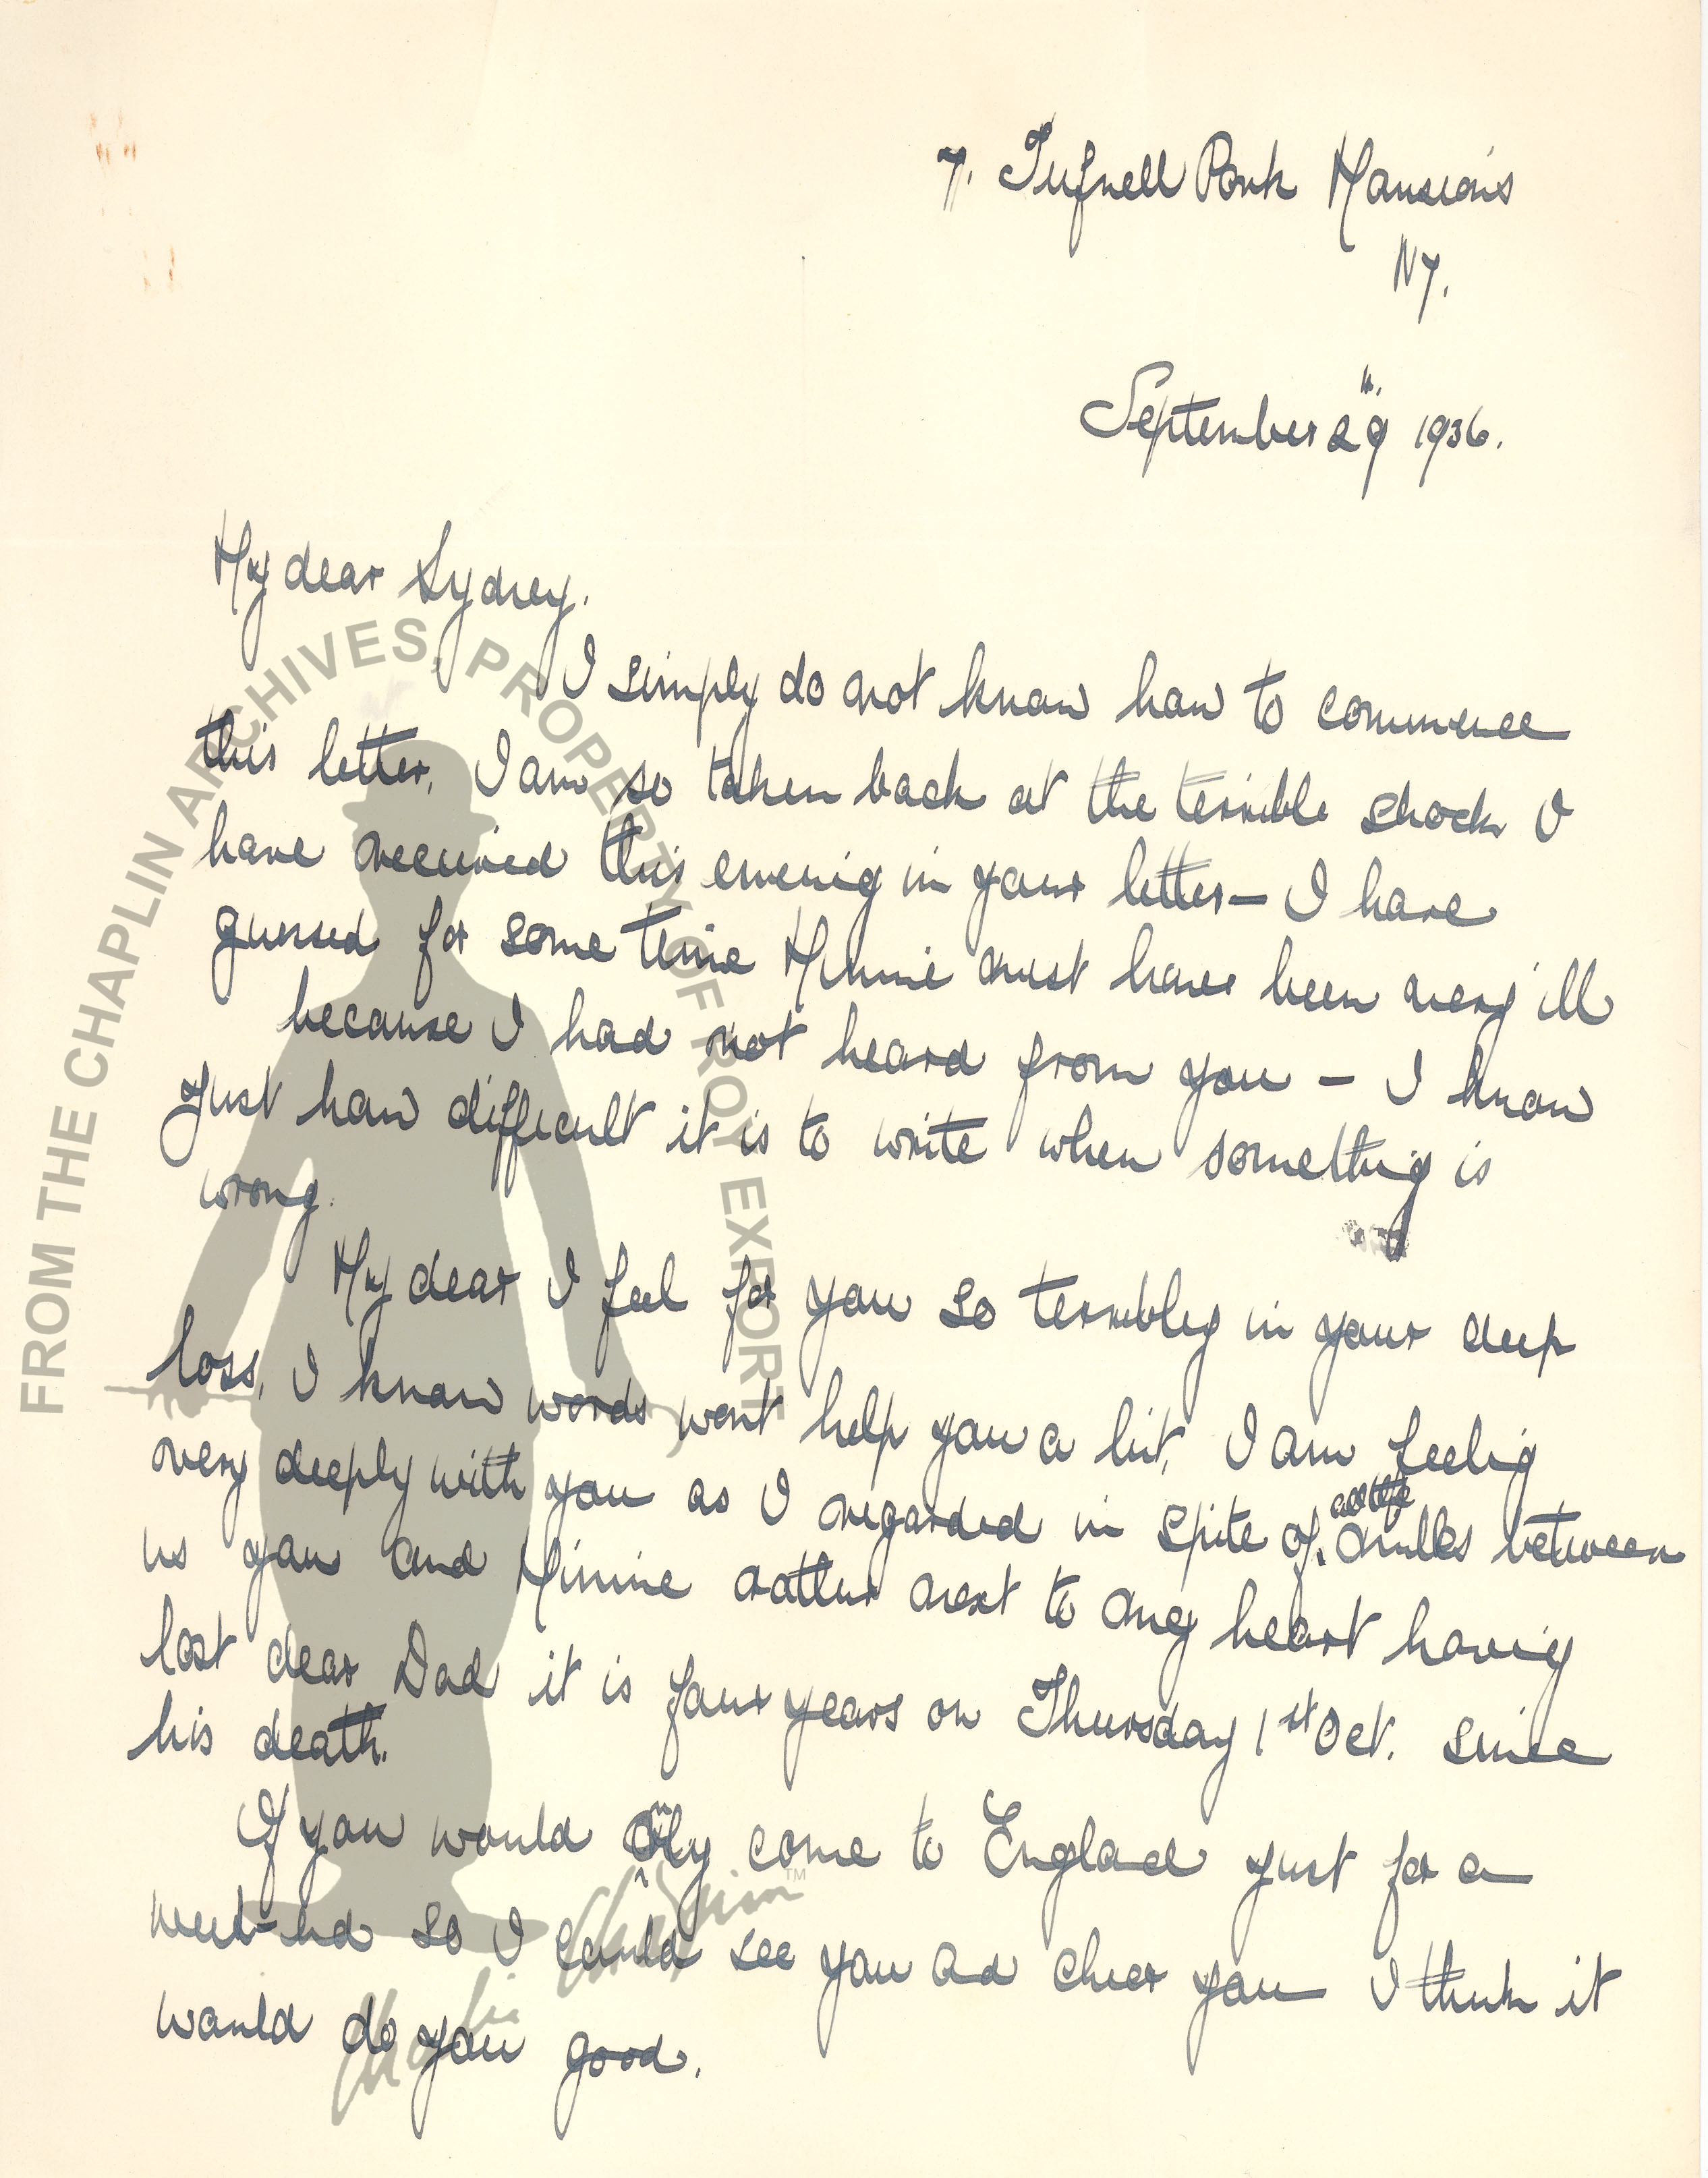 7. Tufnell Park Mansions
N7.
September 29th. 1936.
My dear Sydney.
I simply do not know how to commence
this letter. I am so taken back at the terrible shock I
have received this evening in your letter — I have
guessed for some time Minnie must have been very ill
because I had not heard from you — I know
just how difficult it is to write when something is
wrong.
My dear I feel for you so terribly in your deep
loss. I know words wont help you a bit. I am feeling
very deeply with you as I regarded in spite of all the miles between
us you and Minnie rather next to my heart having
lost dear Dad it is four years on Thursday 1st Oct. since
his death.
If you would only come to England just for a
week-end so I could see you and cheer you I think it
would do you good.
FROM THE CHAPLIN ARCHIVES, PROPERTY OF ROY EXPORT
Charlie Chaplin™